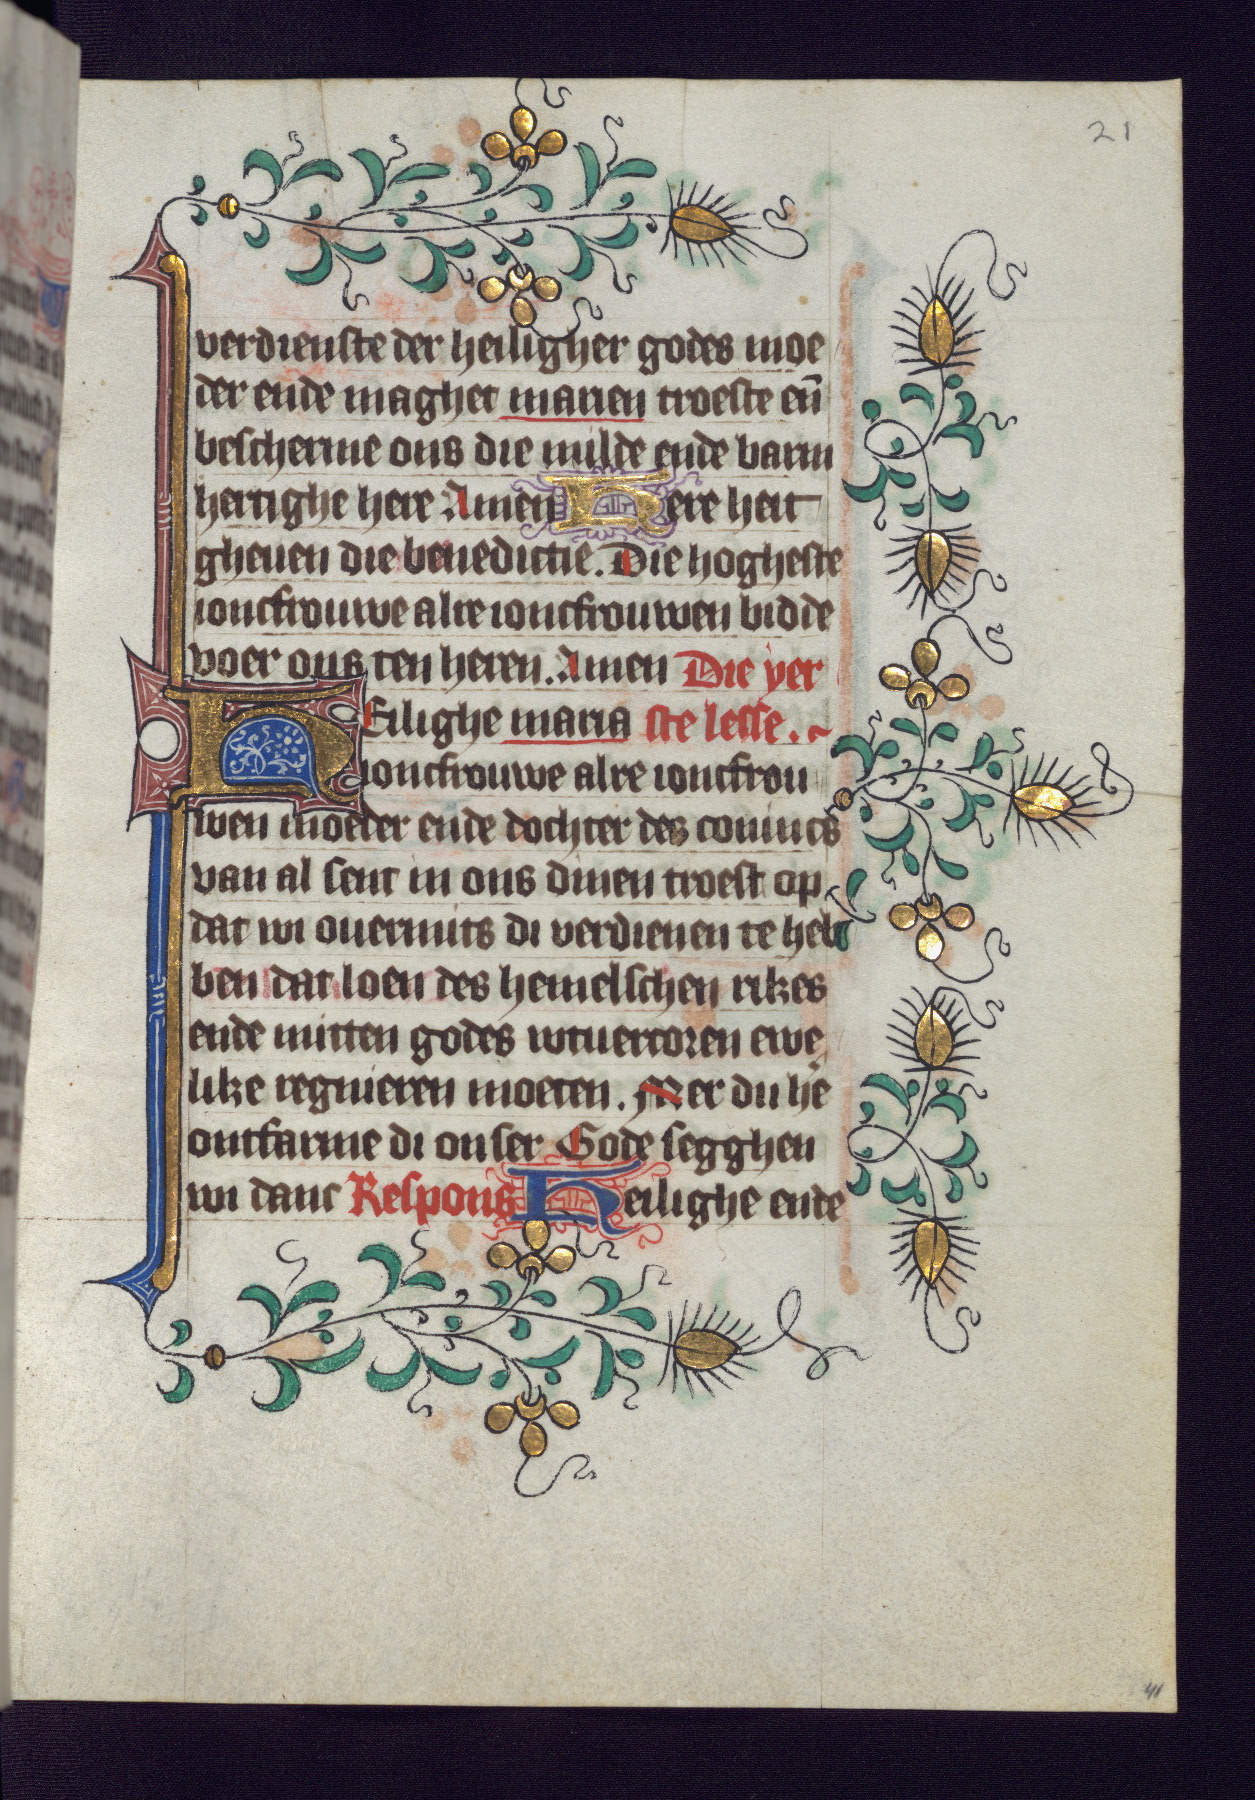 21
verdienste der heiligher godes moe
der ende maghet marien troeste eñ
bescherme ons die milde ende barm
hertighe here Amen Here heit
gheuen die benedictie. Die hogheste
ioncfrouwe alre ioncfrouwen bidde
voer ons ten heren. Amen Die yer
HEilighe maria ste lesse.
ioncfrouwe alre ioncfrou
wen moeder ende dochter des conincs
van al sent in ons dinen troest op
dat wi ouermits di verdienen te heb
ben dat loen des hemelschen rikes
ende mitten godes wtuercoren ewe
like regnieren moeten. Mer du he
ontfarme di onser Gode segghen
wi danc Respons Heilighe ende
41